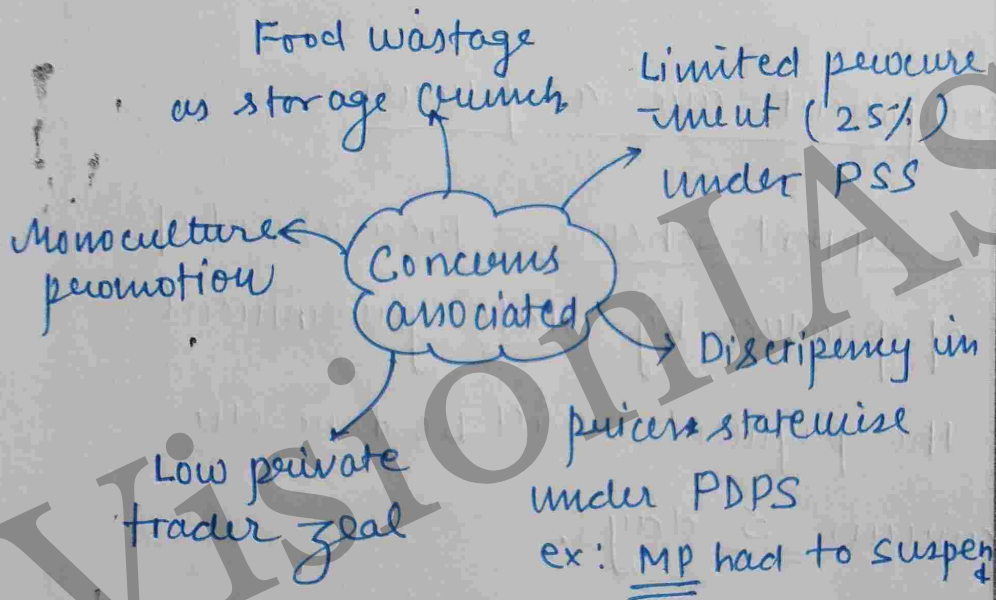 Food wastage
as storage crunch
Limited procure
-ment (25%)
under PSS
Monoculture
promotion
Concerns
associated
Discripency in
prices statewise
under PDPS
ex: MP had to suspend
Low private
trader zeal
VisionIAS